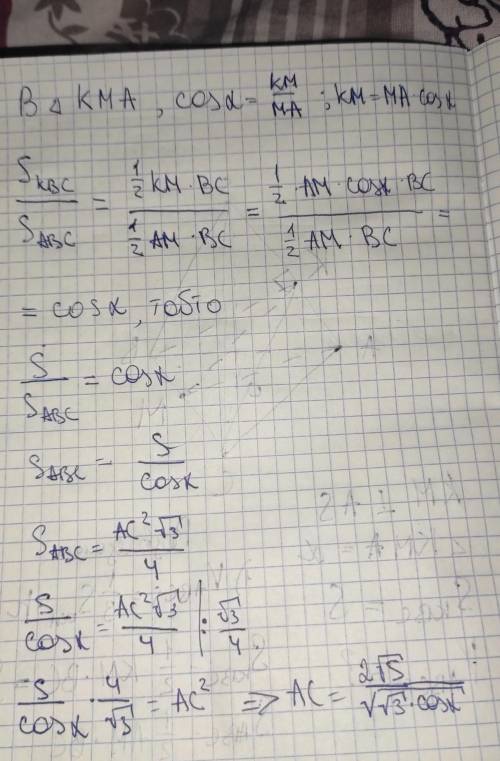 В △ KMA , cosα = KM/MA ; KM = MA · cosα
S_KBC / S_ABC = (1/2 KM · BC) / (1/2 AM · BC) = (1/2 · AM · cosα · BC) / (1/2 AM · BC) =
= cosα , тобто
S / S_ABC = cosα
S_ABC = S / cosα
S_ABC = AC² √3 / 4
S / cosα = AC² √3 / 4 | : √3 / 4
S / cosα · 4 / √3 = AC² => AC = 2√S / √(√3 · cosα)